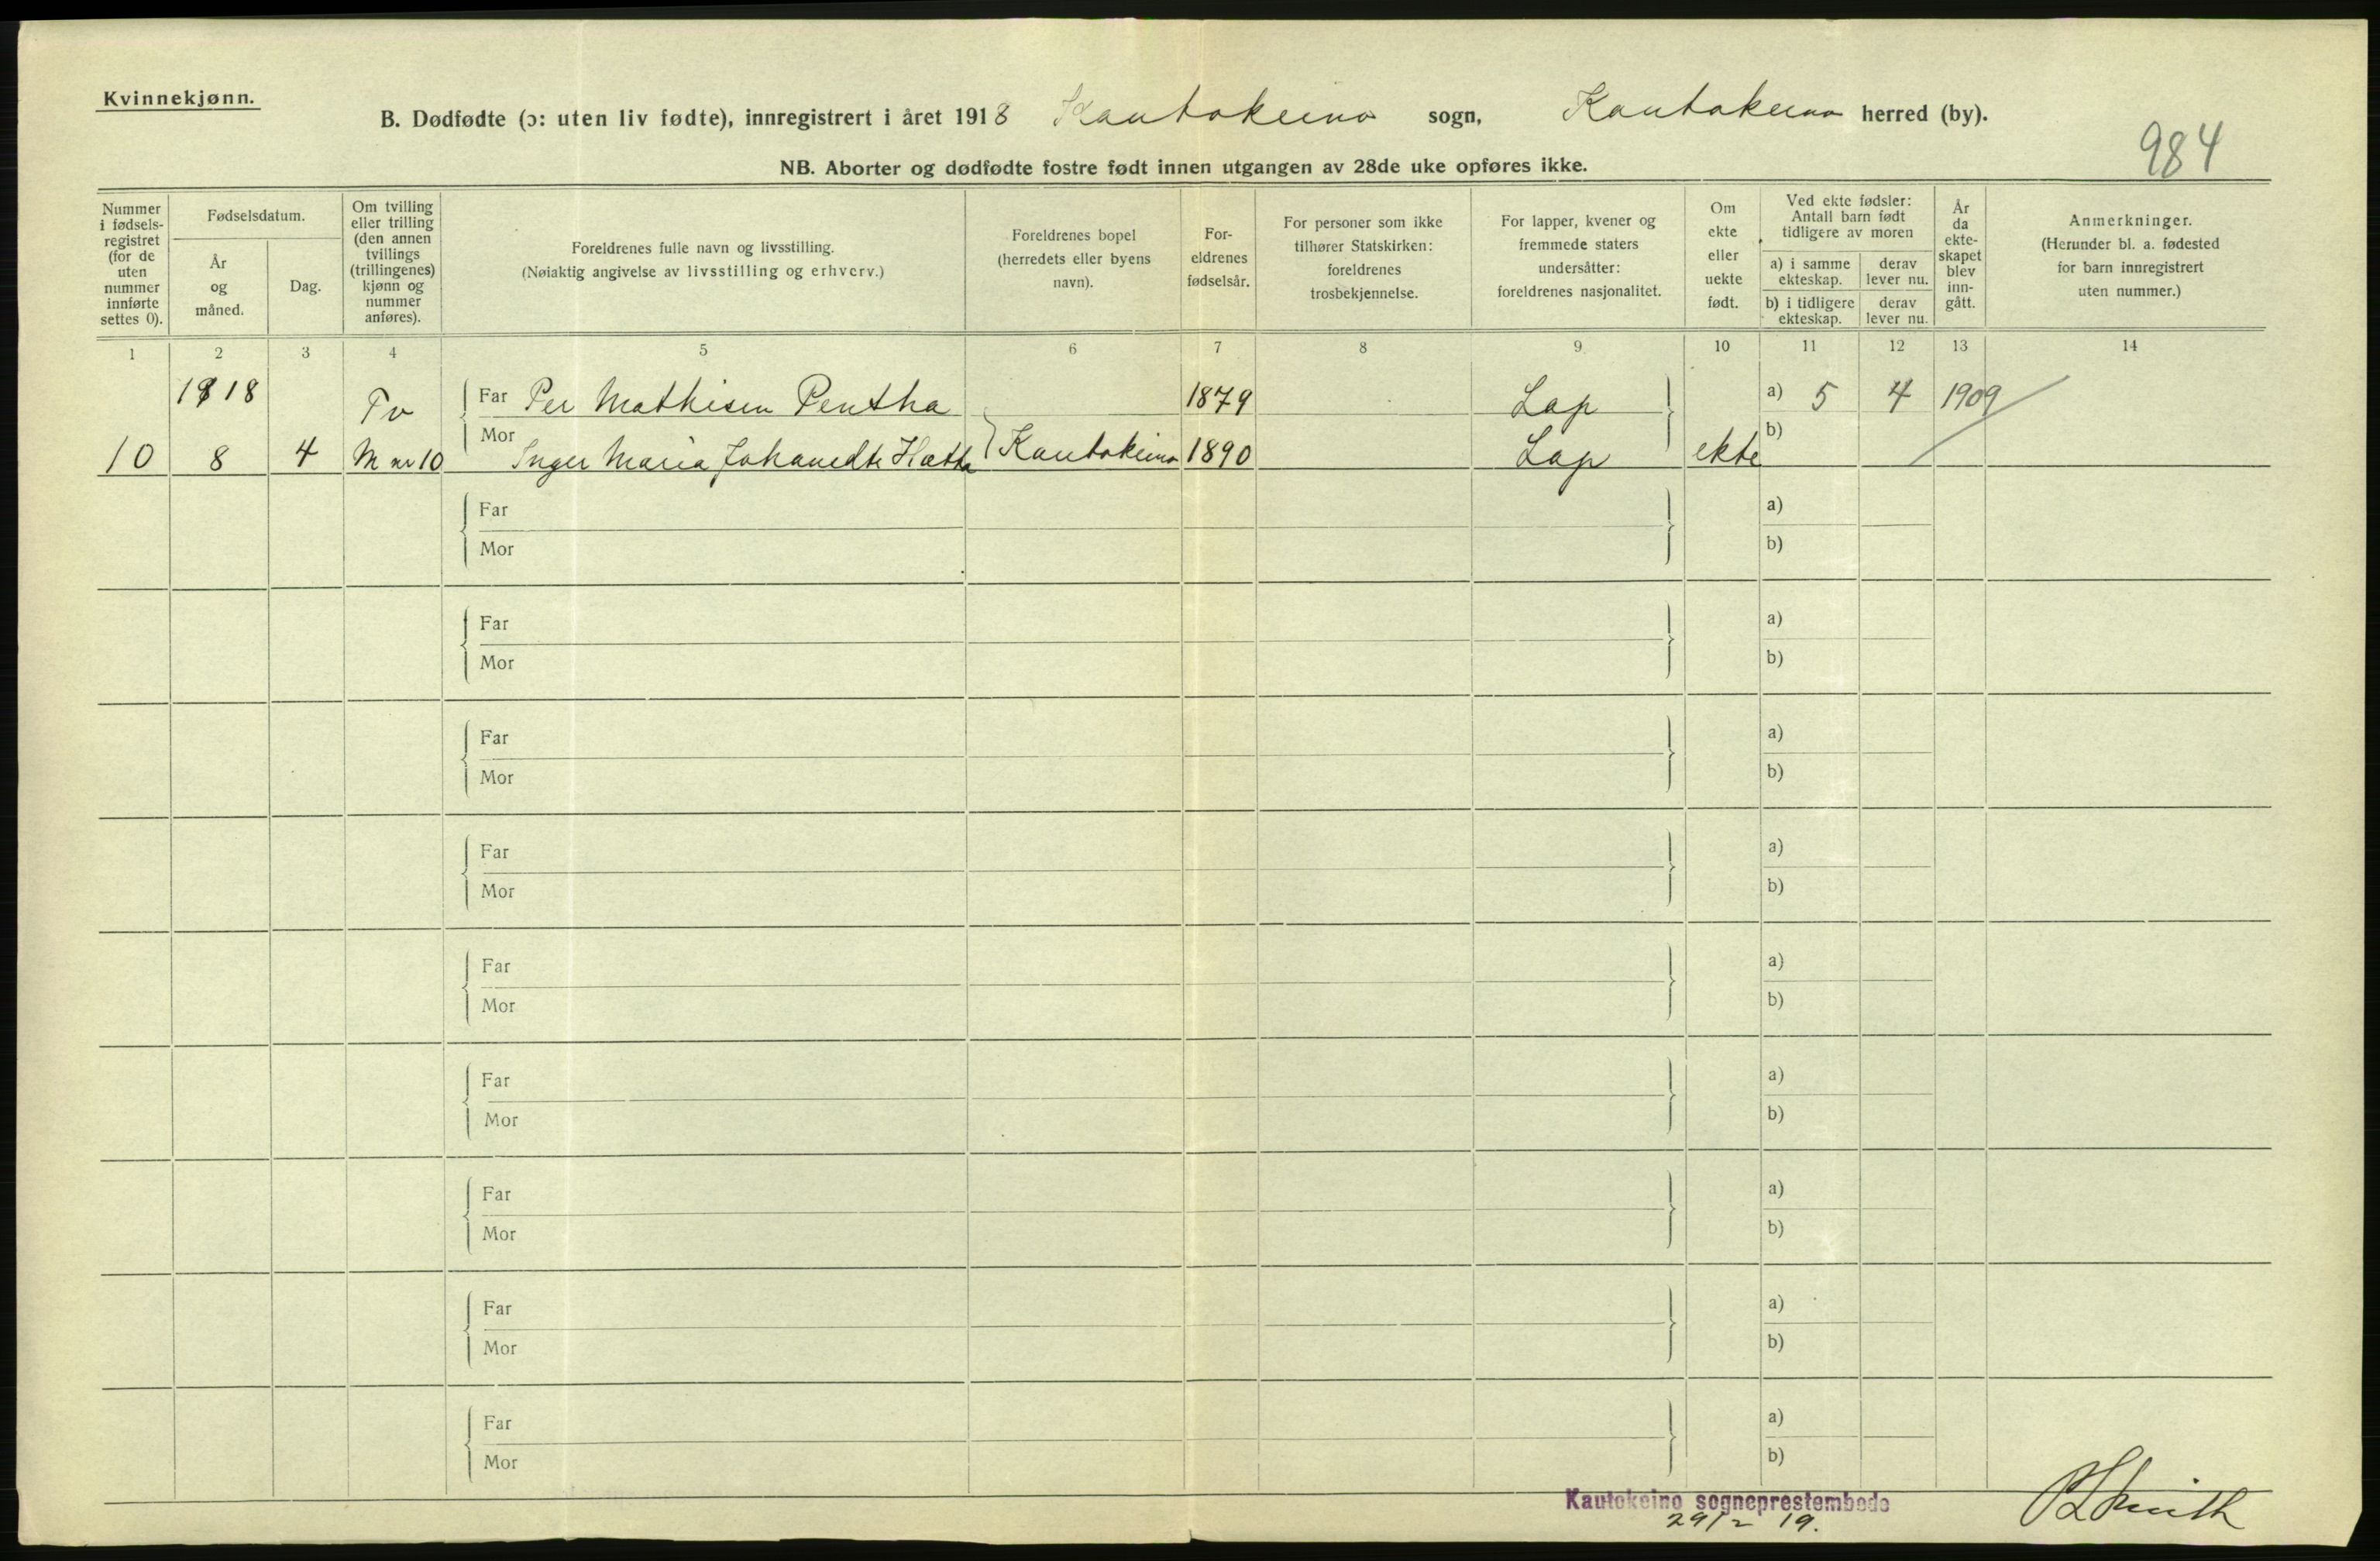 Kvinnekjønn.
B. Dødfødte (ɔ: uten liv fødte), innregistrert i året 1918 Kautokeino sogn, Kautokeino herred (by).
984
NB. Aborter og dødfødte fostre født innen utgangen av 28de uke opføres ikke.
Nummer i fødsels-registret (for de uten nummer innførte settes 0).
Fødselsdatum.
År og måned.
Dag.
Om tvilling eller trilling (den annen tvillings (trillingenes) kjønn og nummer anføres).
Foreldrenes fulle navn og livsstilling.
(Nøiaktig angivelse av livsstilling og erhverv.)
Foreldrenes bopel (herredets eller byens navn).
For-eldrenes fødselsår.
For personer som ikke tilhører Statskirken: foreldrenes trosbekjennelse.
For lapper, kvener og fremmede staters undersåtter: foreldrenes nasjonalitet.
Om ekte eller uekte født.
Ved ekte fødsler: Antall barn født tidligere av moren
a) i samme ekteskap.
derav lever nu.
b) i tidligere ekteskap.
derav lever nu.
År da ekte-skapet blev inn-gått.
Anmerkninger.
(Herunder bl. a. fødested for barn innregistrert uten nummer.)
1 2 3 4 5 6 7 8 9 10 11 12 13 14
1918 Tv Far Per Mathisen Pentha 1879 Lap a) 5 4 1909
10 8 4 M nr 10 Mor Inger Maria Johanedtr Hætta Kautokeino 1890 Lap ekte b)
Far a)
Mor b)
Far a)
Mor b)
Far a)
Mor b)
Far a)
Mor b)
Far a)
Mor b)
Far a)
Mor b)
Far a)
Mor b)
Far a)
Mor b)
Far a)
Mor b)
Kautokeino sogneprestembede
29/2 19.
Smith